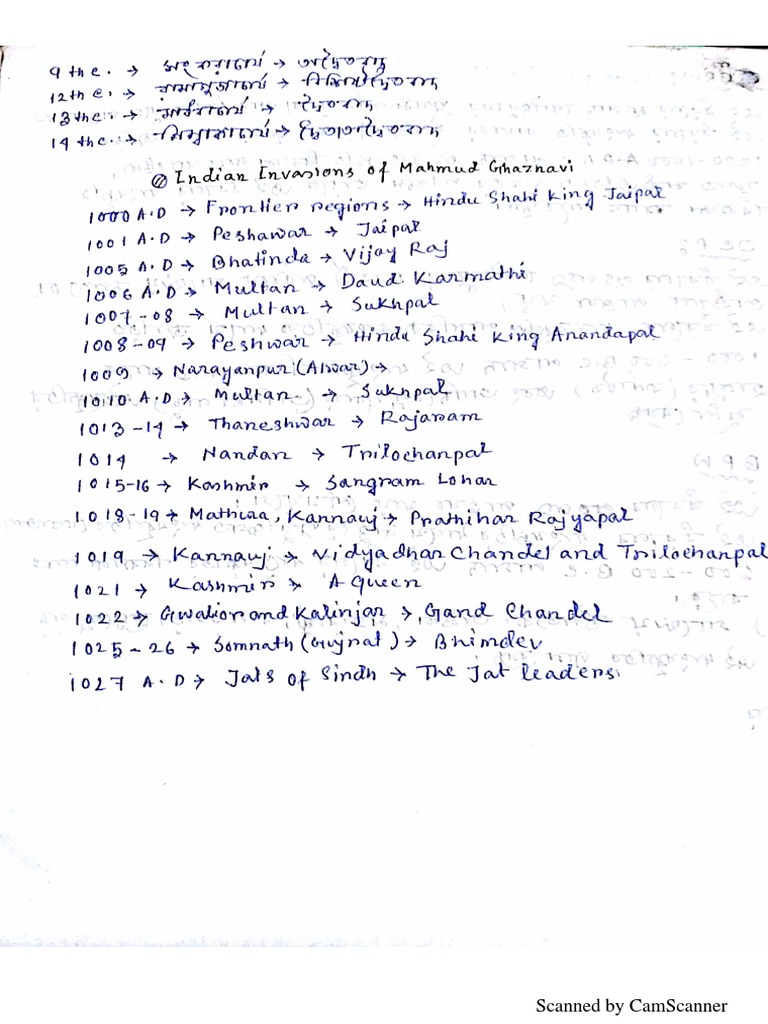 9 th c. → শংকরাচার্য → অদ্বৈতবাদ
12th c. → রামানুজাচার্য → বিশিষ্টাদ্বৈতবাদ
13th c. → মাধবাচার্য → দ্বৈতবাদ
14 th c. → নিম্বার্কাচার্য → দ্বৈতাদ্বৈতবাদ
Indian Invasions of Mahmud Ghaznavi
1000 A.D → Frontier regions → Hindu Shahi King Jaipal
1001 A.D → Peshawar → Jaipal
1005 A.D → Bhatinda → Vijay Raj
1006 A.D → Multan → Daud Karmathi
1007-08 → Multan → Sukhpal
1008-09 → Peshwar → Hindu Shahi King Anandapal
1009 → Narayanpur (Alwar) →
1010 A.D → Multan → Sukhpal
1013-14 → Thaneshwar → Rajaram
1014 → Nandan → Trilochanpal
1015-16 → Kashmir → Sangram Lohar
1018-19 → Mathura, Kannauj → Prathihar Rajyapal
1019 → Kannauj → Vidyadhar Chandel and Trilochanpal
1021 → Kashmir → A Queen
1022 → Gwalior and Kalinjar → Gand Chandel
1025-26 → Somnath (Gujrat) → Bhimdev
1027 A.D → Jats of Sindh → The Jat leaders
Scanned by CamScanner